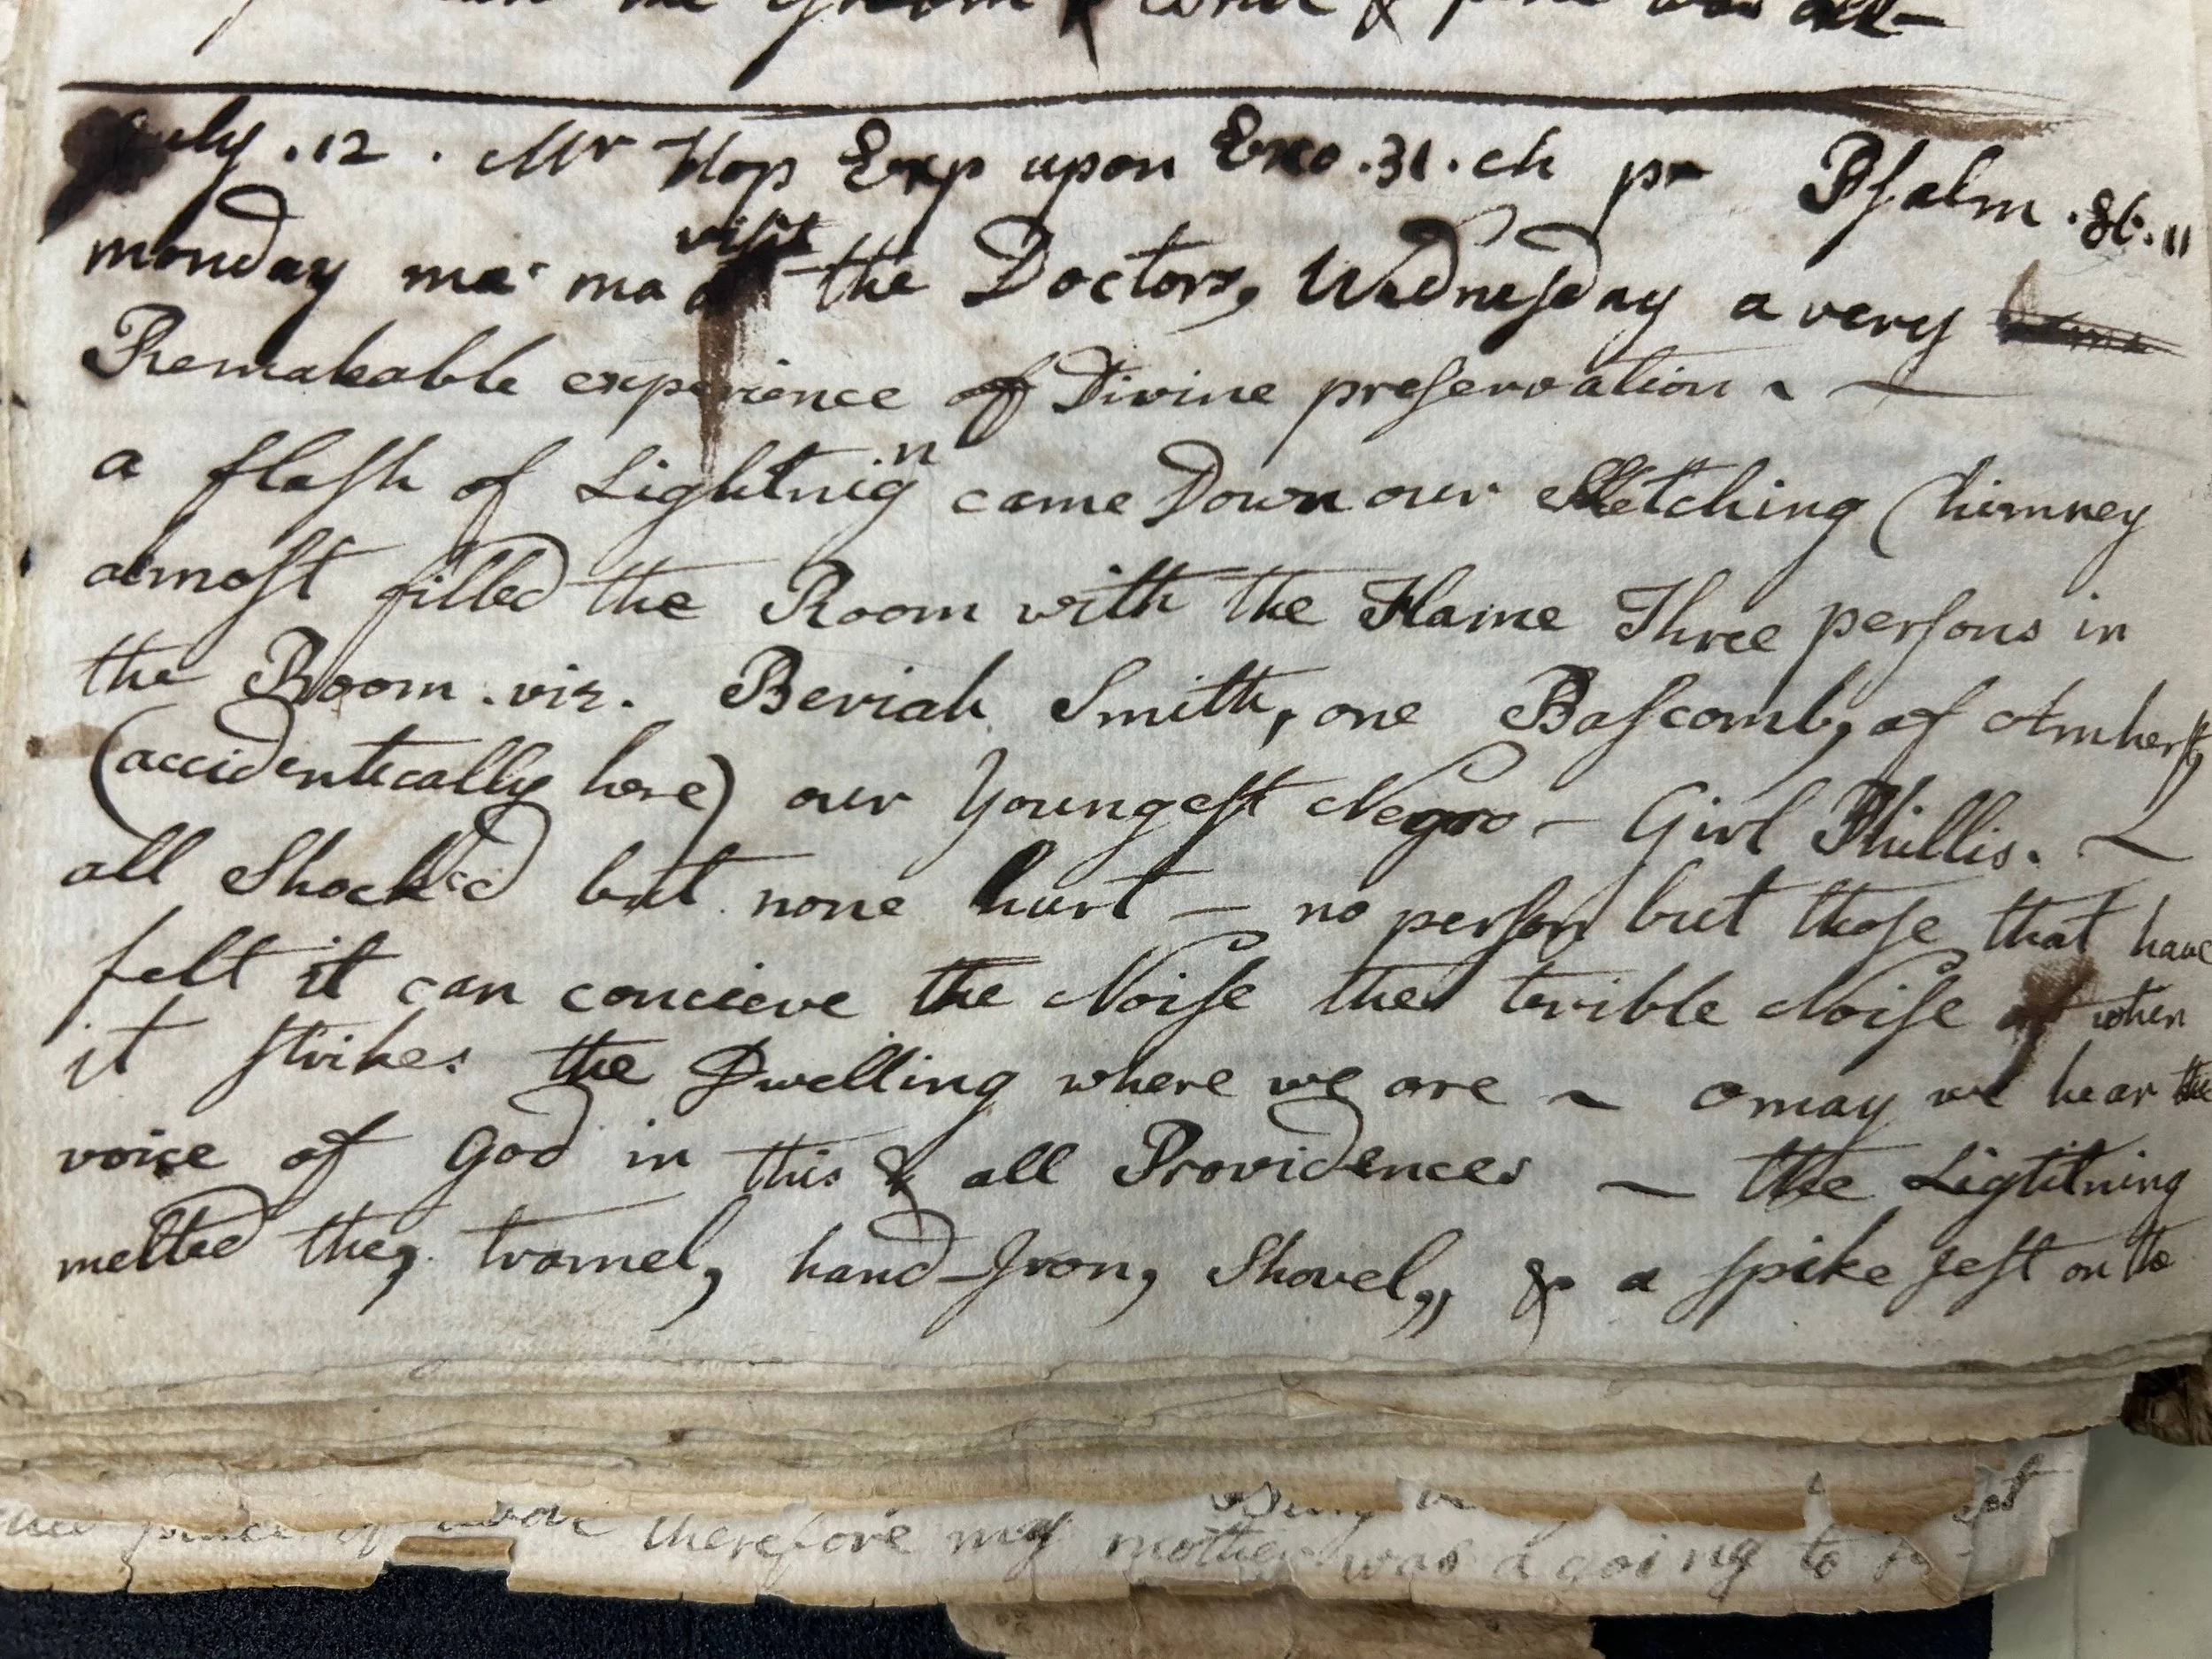 the Groom &
July . 12 . Mr Hop Exp upon Exo . 31 . ch pr Psalm . 86 . 11
monday ma ma visit the Doctors, Wednesday a very
Remakeable experience of Divine preservation ~ —
a flash of Lightnign came Down our Ketching Chimney
almost filled the Room with the Flame Three persons in
the Room . viz . Beriah Smith, one Bascomb, of Amherst,
(accidentically here) our Youngest Negro - Girl Phillis . ~
all Shocked but none hurt — no person but those that have
felt it can concieve the Noise the terible Noise when
it strikes the Dwelling where we are ~ o may we hear the
voice of God in this & all Providences — the Ligtitning
melted the, tramel, hand-Iron, Shovel,, & a spike Jest on the
therefore my mother was a going to